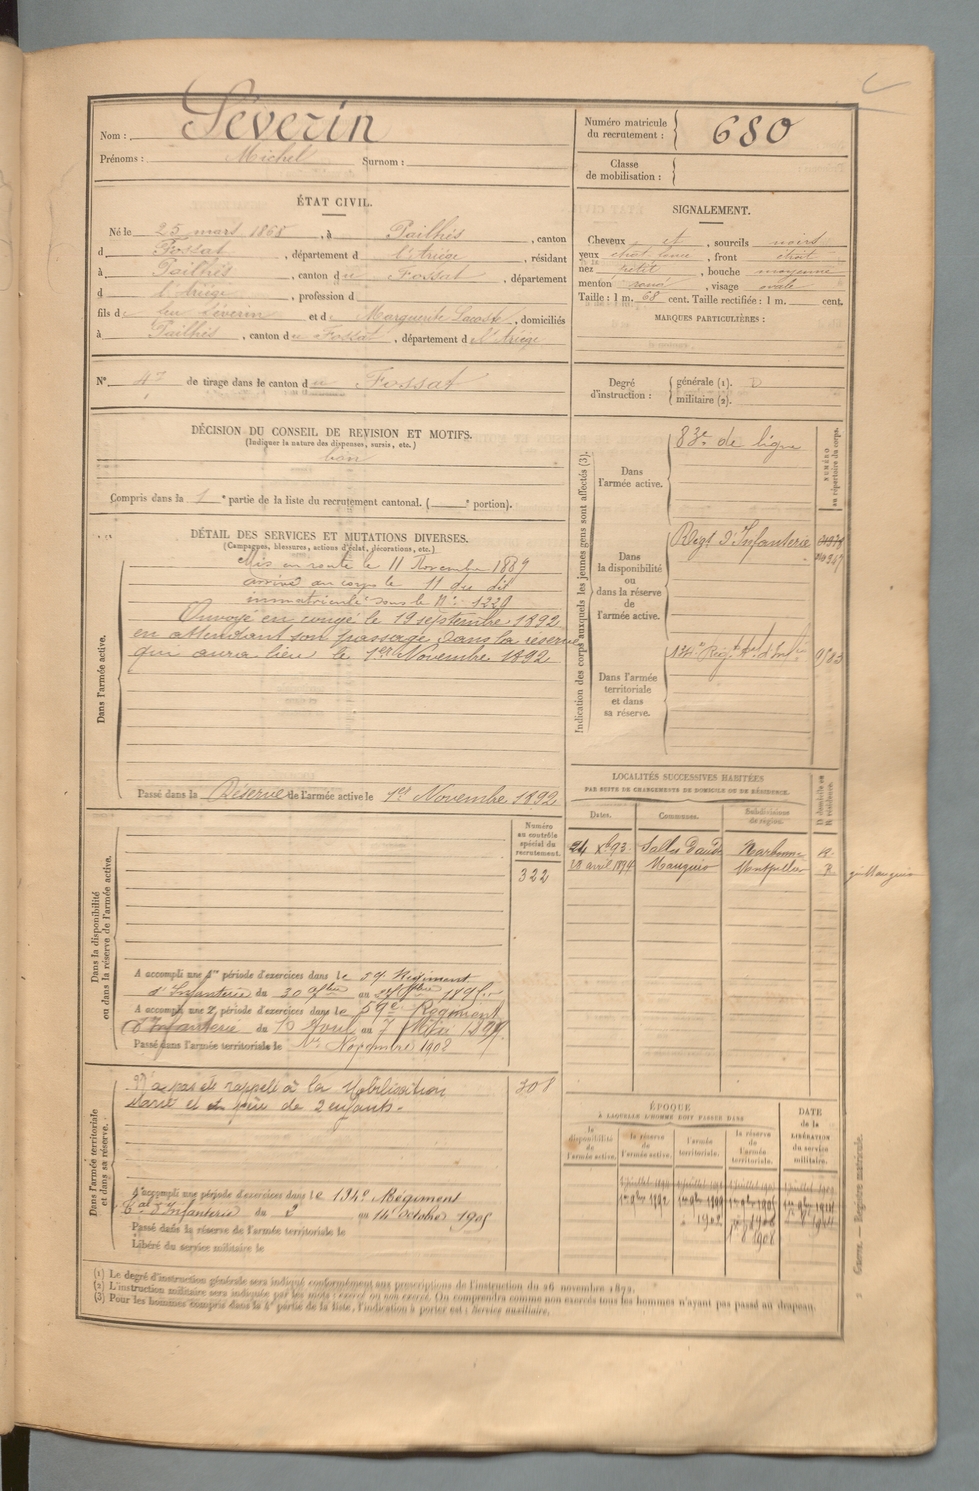 Nom : Séverin
Prénoms : Michel Surnom :
Numéro matricule du recrutement : 680
Classe de mobilisation :
ÉTAT CIVIL.
Né le 25 mars 1868, à Pailhès, canton
d Fossat, département d l'Ariège, résidant
à Pailhès, canton du Fossat, département
d l'Ariège, profession d
fils de feu Séverin et de Marguerite Lacoste, domiciliés
à Pailhès, canton du Fossat, département de l'Ariège
N° 47 de tirage dans le canton du Fossat
SIGNALEMENT.
Cheveux et, sourcils noirs
yeux, front étroit
nez petit, bouche moyenne
menton rond, visage ovale
Taille : 1 m. 68 cent. Taille rectifiée : 1 m. cent.
MARQUES PARTICULIÈRES :
Degré d'instruction : générale (1).
militaire (2).
DÉCISION DU CONSEIL DE REVISION ET MOTIFS.
(Indiquer la nature des dispenses, sursis, etc.)
bon
Compris dans la 1e partie de la liste du recrutement cantonal. ( e portion).
DÉTAIL DES SERVICES ET MUTATIONS DIVERSES.
(Campagnes, blessures, actions d'éclat, décorations, etc.)
Dans l'armée active.
Mis en route le 11 Novembre 1889
arrivé au corps le 11 du dit
immatriculé sous le N° 1229
Envoyé en congé le 19 septembre 1892
en attendant son passage dans la réserve
qui aura lieu le 1er Novembre 1892
Passé dans la Réserve de l'armée active le 1er Novembre 1892
Indication des corps auxquels les jeunes gens sont affectés (3).
NUMÉRO au répertoire du corps.
Dans l'armée active.
83e de ligne
Dans la disponibilité ou dans la réserve de l'armée active.
Régt d'Infanterie
Dans l'armée territoriale et dans sa réserve.
LOCALITÉS SUCCESSIVES HABITÉES
PAR SUITE DE CHANGEMENTS DE DOMICILE OU DE RÉSIDENCE.
Dates. Communes. Subdivisions de région. D domicile ou R résidence.
24 Xbre 93. Salles d'Aude Narbonne R.
28 avril 1894 Mauguio Montpellier R
Dans la disponibilité ou dans la réserve de l'armée active.
Numéro au contrôle spécial du recrutement.
322
A accompli une 1re période d'exercices dans le 59e Régiment
d'Infanterie du 30 au
A accompli une 2e période d'exercices dans le 59e Régiment
d'Infanterie du Avril au 7 Mai
Passé dans l'armée territoriale le 1er Novembre 1902
Dans l'armée territoriale et dans sa réserve.
N'a pas été rappelé à la Mobilisation
Marié et père de 2 enfants.
708
A accompli une période d'exercices dans le 134e Régiment
Tal d'Infanterie du 2 au 14 octobre 1905
Passé dans la réserve de l'armée territoriale le
Libéré du service militaire le
ÉPOQUE
À LAQUELLE L'HOMME DOIT PASSER DANS
la disponibilité de l'armée active. la réserve de l'armée active. l'armée territoriale. la réserve de l'armée territoriale.
DATE de la LIBÉRATION du service militaire.
(1) Le degré d'instruction générale sera indiqué conformément aux prescriptions de l'instruction du 26 novembre 1872.
(2) L'instruction militaire sera indiquée par les mots : exercé ou non exercé. On comprendra comme non exercés tous les hommes n'ayant pas passé au drapeau.
(3) Pour les hommes compris dans la 4e partie de la liste, l'indication à porter est : Service auxiliaire.
Guerre. — Registre matricule.